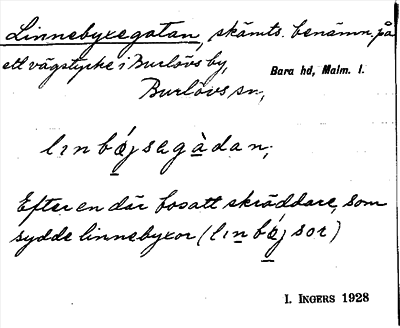 Linnebyxegatan, skämts. benämn. på
ett vägstycke i Burlövs by,
Bara hd, Malm. l.
Burlövs sn,
lınbǿjsegàdan;
Efter en där bosatt skräddare, som
sydde linnebyxor (lınbǿjsor)
I. INGERS 1928